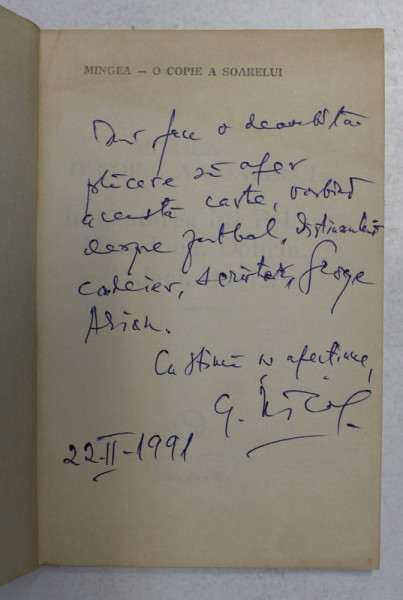 MINGEA – O COPIE A SOARELUI
Îmi face o deosebită
plăcere să ofer
această carte, vorbind
despre fotbal, distinsului
coleier, scriitor, George
Arion.
Cu stimă și afecțiune,
G.
22-II-1991